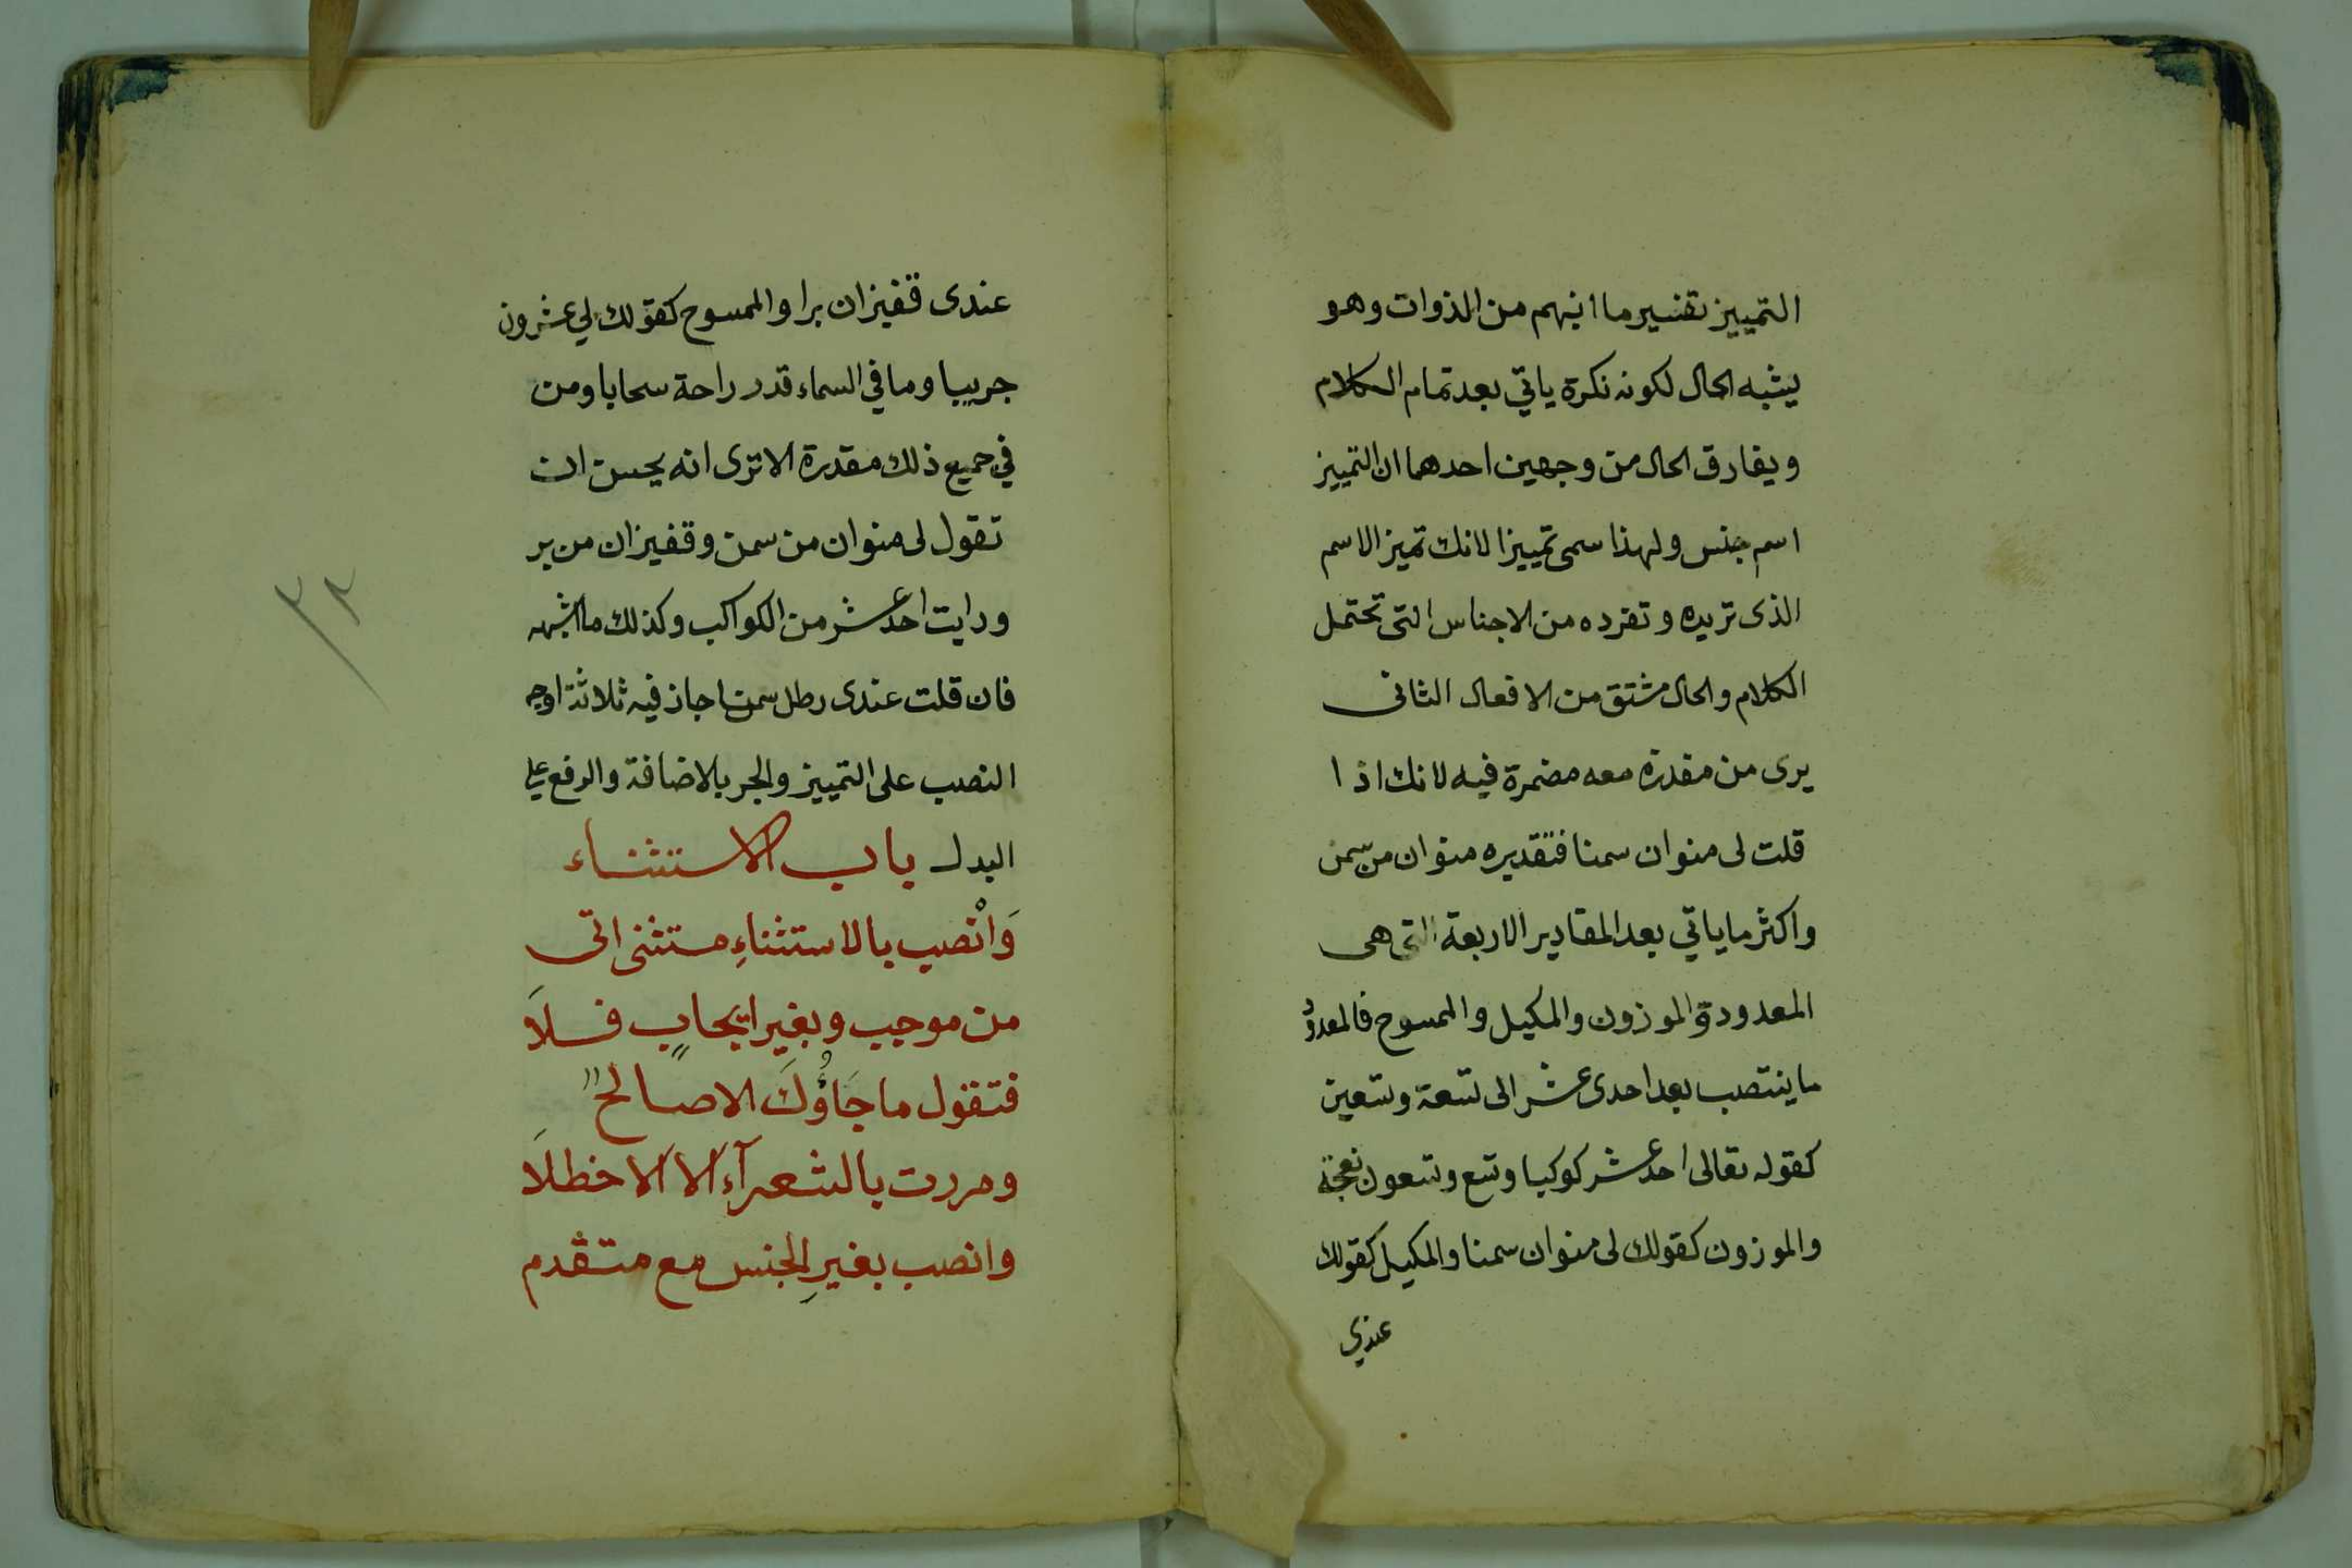 التمييز تفسير ما انبهم من الذوات وهو
يشبه الحال لكونه نكرة ياتي بعد تمام الكلام
ويفارق الحال من وجهين احدهما ان التمييز
اسم جنس ولهذا سمى تمييزا لانك تميز الاسم
الذى تريده وتفرده من الاجناس التى تحتمل
الكلام والحال مشتق من الافعال الثانى
يرى من مقدرة معه مضمرة فيه لانك اذا
قلت لى منوان سمنا فتقديره منوان من سمن
واكثر ما ياتي بعد المقادير الاربعة التى هى
المعدودة والموزون والمكيل والممسوح فالمعدود
ما ينتصب بعد احدى عشر الى تسعة وتسعين
كقوله تعالى احد عشر كوكبا وتسع وتسعون نعجة
والموزون كقولك لى منوان سمنا والمكيل كقولك
عندي
عندى قفيزان برا والممسوح كقولك لي عشرون
جريبا وما في السماء قدر راحة سحابا ومن
في جميع ذلك مقدرة الا ترى انه يحسن ان
تقول لى منوان من سمن وقفيزان من بر
ورايت احد عشر من الكواكب وكذلك ما اشبهه
فان قلت عندى رطل سمنا جاز فيه ثلاثة اوجه
النصب على التمييز والجر بالاضافة والرفع علي
البدل باب الاستثناء
وَانْصب بالاستثناءِ مستثنى اتى
من موجب وبغير ايجابٍ فلاَ
فتقول ما جَاؤُكَ الا صالحٌ
ومررت بالشعرآءِ الا الاخطلاَ
وانصب بغيرِ الجنسِ مع متقدم
٣٢